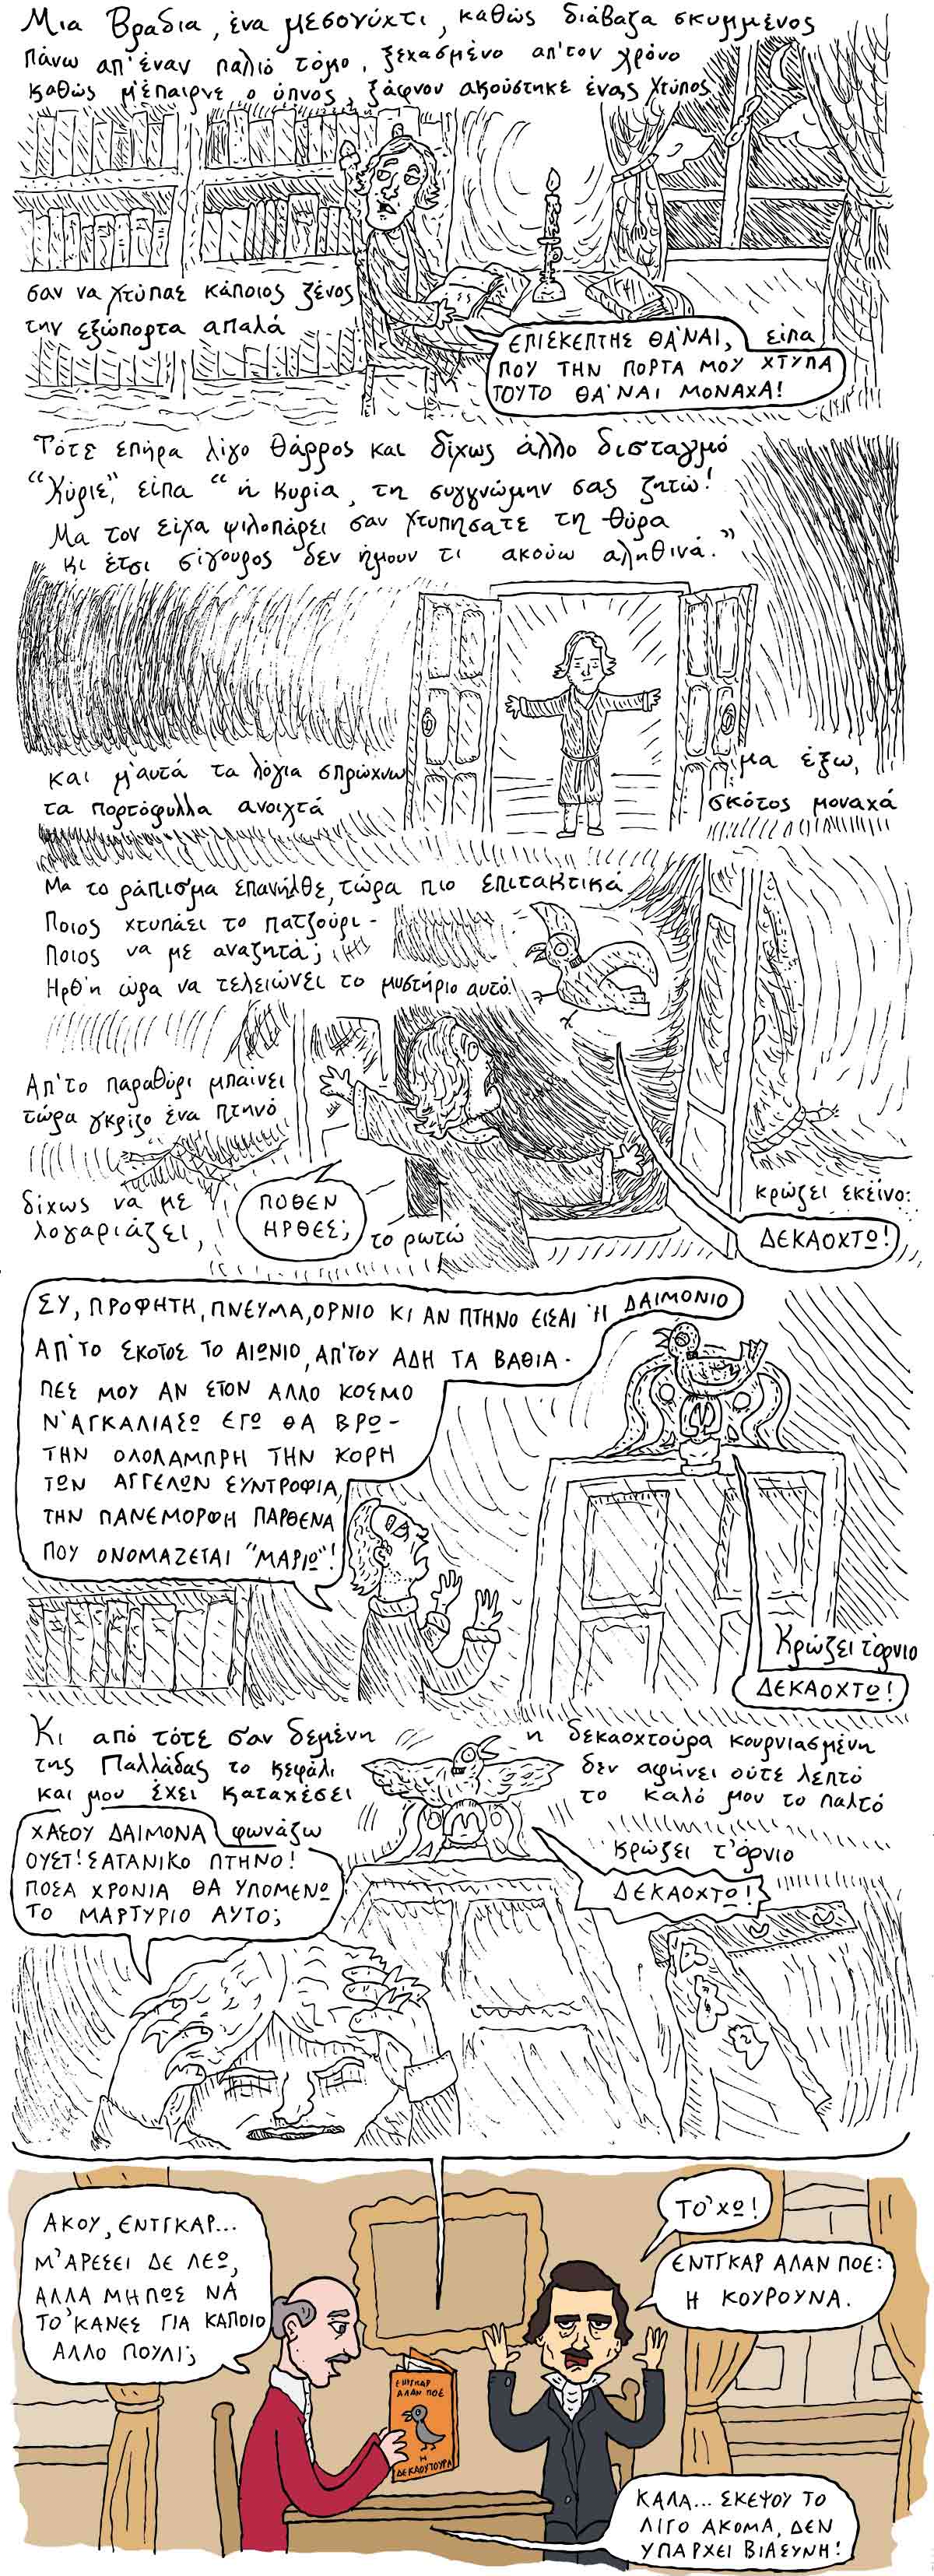 Μια Βραδια, ένα μεσονύχτι, καθώς διάβαζα σκυμμένος
πάνω απ' έναν παλιό τόμο, ξεχασμένο απ' τον χρόνο
καθώς μ'έπαιρνε ο ύπνος, ξάφνου ακούστηκε ένας χτύπος
σαν να χτύπαε κάποιος ξένος
την εξώπορτα απαλά
ΕΠΙΣΚΕΠΤΗΣ ΘΑ'ΝΑΙ, είπα
ΠΟΥ ΤΗΝ ΠΟΡΤΑ ΜΟΥ ΧΤΥΠΑ
ΤΟΥΤΟ ΘΑ'ΝΑΙ ΜΟΝΑΧΑ!
Τότε επήρα λίγο θάρρος και δίχως άλλο δισταγμό
"Κύριε", είπα "ή Κυρία, τη συγγνώμην σας ζητώ!
Μα τον είχα ψιλοπάρει σαν χτυπήσατε τη θύρα
κι έτσι σίγουρος δεν ήμουν τι ακούω αληθινά."
και μ'αυτά τα λόγια σπρώχνω
τα πορτόφυλλα ανοιχτά
μα έξω,
σκότος μοναχά
Μα το ράπισμα επανήλθε, τώρα πιο επιτακτικά
Ποιος χτυπάει το πατζούρι -
Ποιος να με αναζητά;
Ήρθ'η ώρα να τελειώνει το μυστήριο αυτό.
Απ'το παραθύρι μπαίνει
τώρα γκρίζο ένα πτηνό
δίχως να με
λογαριάζει,
ΠΟΘΕΝ
ΗΡΘΕΣ;
το ρωτώ
κρώζει εκείνο:
ΔΕΚΑΟΧΤΩ!
ΣΥ, ΠΡΟΦΗΤΗ, ΠΝΕΥΜΑ, ΟΡΝΙΟ ΚΙ ΑΝ ΠΤΗΝΟ ΕΙΣΑΙ Ή ΔΑΙΜΟΝΙΟ
ΑΠ'ΤΟ ΣΚΟΤΟΣ ΤΟ ΑΙΩΝΙΟ, ΑΠ'ΤΟΥ ΑΔΗ ΤΑ ΒΑΘΙΑ -
ΠΕΣ ΜΟΥ ΑΝ ΣΤΟΝ ΑΛΛΟ ΚΟΣΜΟ
Ν'ΑΓΚΑΛΙΑΣΩ ΕΓΩ ΘΑ ΒΡΩ-
ΤΗΝ ΟΛΟΛΑΜΠΡΗ ΤΗΝ ΚΟΡΗ
ΤΩΝ ΑΓΓΕΛΩΝ ΣΥΝΤΡΟΦΙΑ,
ΤΗΝ ΠΑΝΕΜΟΡΦΗ ΠΑΡΘΕΝΑ
ΠΟΥ ΟΝΟΜΑΖΕΤΑΙ "ΜΑΡΙΩ"!
Κρώζει τ'όρνιο
ΔΕΚΑΟΧΤΩ!
Κι από τότε σαν δεμένη η δεκαοχτούρα κουρνιασμένη
της Παλλάδας το κεφάλι δεν αφήνει ούτε λεπτό
και μου έχει καταχέσει το καλό μου το παλτό
ΧΑΣΟΥ ΔΑΙΜΟΝΑ φωνάζω
ΟΥΣΤ! ΣΑΤΑΝΙΚΟ ΠΤΗΝΟ!
ΠΟΣΑ ΧΡΟΝΙΑ ΘΑ ΥΠΟΜΕΝΩ
ΤΟ ΜΑΡΤΥΡΙΟ ΑΥΤΟ;
κρώζει τ'όρνιο
ΔΕΚΑΟΧΤΩ!
ΑΚΟΥ, ΕΝΤΓΚΑΡ...
Μ'ΑΡΕΣΕΙ ΔΕ ΛΕΩ,
ΑΛΛΑ ΜΗΠΩΣ ΝΑ
ΤΟ'ΚΑΝΕΣ ΓΙΑ ΚΑΠΟΙΟ
ΑΛΛΟ ΠΟΥΛΙ;
ΤΟ'ΧΩ!
ΕΝΤΓΚΑΡ ΑΛΑΝ ΠΟΕ:
Η ΚΟΥΡΟΥΝΑ.
ΕΝΤΓΚΑΡ
ΑΛΑΝ ΠΟΕ
Η
ΔΕΚΑΟΥΤΟΥΡΑ
ΚΑΛΑ... ΣΚΕΨΟΥ ΤΟ
ΛΙΓΟ ΑΚΟΜΑ, ΔΕΝ
ΥΠΑΡΧΕΙ ΒΙΑΣΥΝΗ!